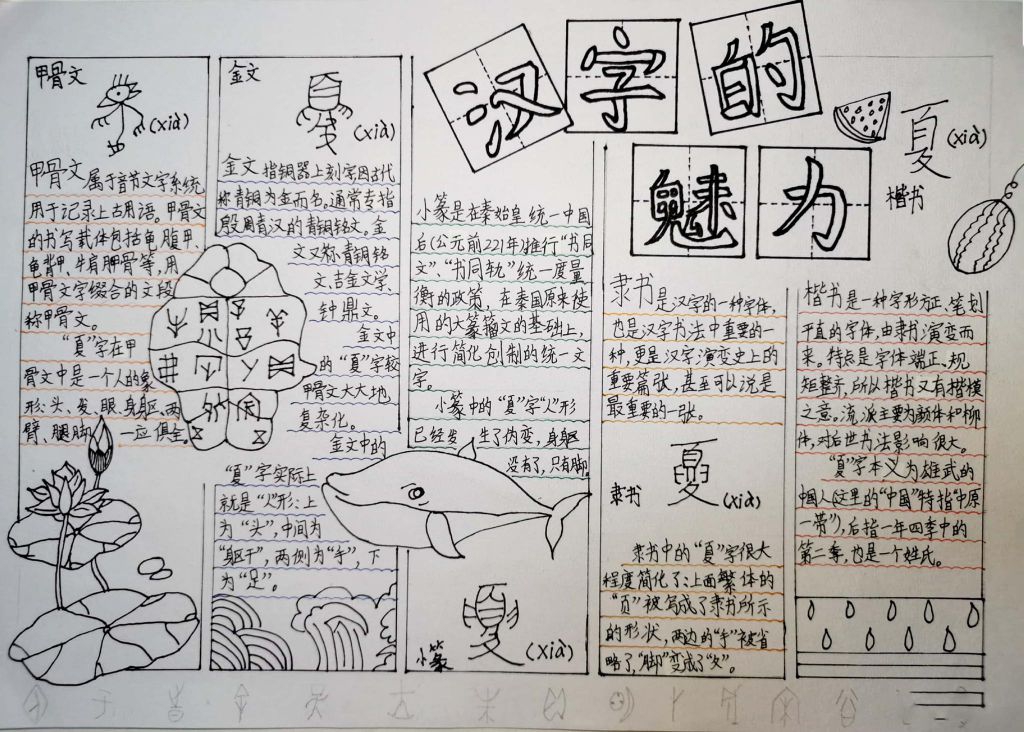 汉字的
魅力
甲骨文
(xià)
甲骨文属于音节文字系统
用于记录上古用语。甲骨文
的书写载体包括龟腹甲、
龟背甲、牛肩胛骨等,用
甲骨文字缀合的文段
称甲骨文。
“夏”字在甲
骨文中是一个人的象
形:头、发、眼、身躯、两
臂、腿脚一应俱全。
金文
(xià)
金文指铜器上刻字因古代
称青铜为金而名。通常专指
殷周青汉的青铜铭文。金
文又称青铜铭
文、吉金文学、
钟鼎文。
金文中
的“夏”字较
甲骨文大大地
复杂化。
金文中的
“夏”字实际上
就是“人”形:上
为“头”,中间为
“躯干”,两侧为“手”,下
为“足”。
小篆是在秦始皇统一中国
后(公元前221年)推行“书同
文”、“书同轨”统一度量
衡的政策,在秦国原来使
用的大篆籀文的基础上,
进行简化创制的统一文
字。
小篆中的“夏”字“人”形
已经发生了伪变,身躯
没有了,只有脚。
小篆
(xià)
隶书是汉字的一种字体,
也是汉字书法中重要的一
种,更是汉字演变史上的
重要篇张,甚至可以说是
最重要的一张。
隶书
夏(xià)
隶书中的“夏”字很大
程度简化了:上面繁体的
“页”被写成了隶书所示
的形状,两边的“手”被省
略了,“脚”变成了“夂”。
夏(xià)
楷书
楷书是一种字形方正、笔划
平直的字体,由隶书演变而
来。特点是字体端正、规
矩整齐,所以楷书又有楷模
之意。流派主要为颜体和柳
体,对后世书法影响很大。
“夏”字本义为雄武的
中国人(这里的“中国”特指“中原
一带”),后指一年四季中的
第二季,也是一个姓氏。